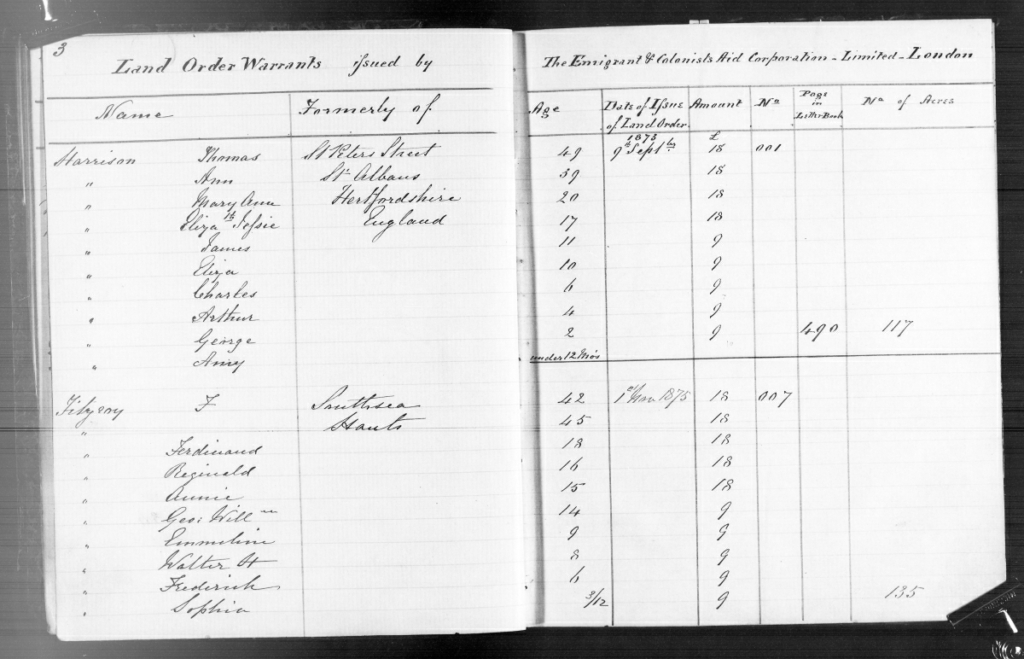 3
Land Order Warrants issued by The Emigrant & Colonists Aid Corporation - Limited - London
Name Formerly of Age Date of Issue of Land Order Amount No Page in Letter Book No of Acres
Harrison Thomas St Peters Street 49 1875 9th Septbr £ 18 001
" Ann St Albans 39 18
" Mary Ann Hertfordshire 20 18
" Elizath Jessie England 17 18
" James 11 9
" Eliza 10 9
" Charles 6 9
" Arthur 4 9
" George 2 9 490 117
" Amy under 12 Mos
F Southsea 42 1st Nov 1875 18 007
" Hants 45 18
" Ferdinand 18 18
" Reginald 16 18
" Annie 15 18
" Geo: Willm 14 9
" Emmeline 9 9
" Walter H 8 9
" Frederick 6 9
" Sophia 3/12 9 135